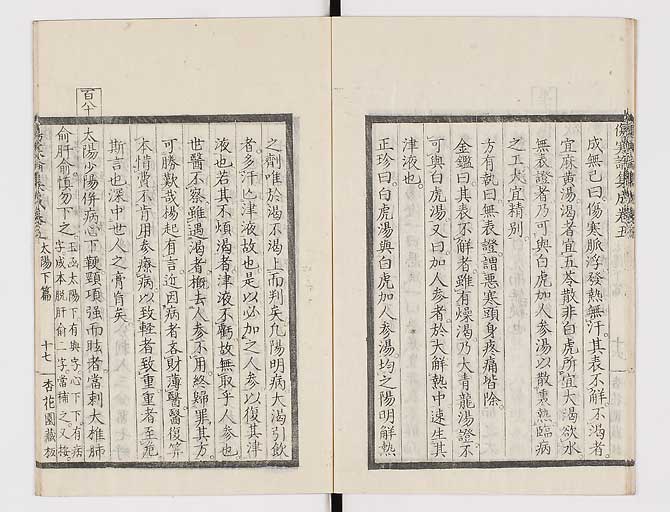 傷寒論集成卷五
成無已曰。傷寒脈浮發熱無汗。其表不解。不渴者。
宜麻黃湯。渴者宜五苓散。非白虎所宜。大渴欲水
無表證者。乃可與白虎加人參湯。以散裏熱。臨病
之工。大宜精別。
方有執曰。無表證。謂惡寒頭身疼痛皆除。
金鑑曰。其表不解者。雖有燥渴。乃大青龍湯證。不
可與白虎湯。又曰。加人參者。於大解熱中。速生其
津液也。
正珍曰。白虎湯與白虎加人參湯。均之陽明解熱
之劑。唯於渴不渴上而判矣。凡陽明病。大渴引飲
者。多汗亡津液故也。是以必加之人參。以復其津
液也。若其不煩渴者。津液不虧。故無取乎人參也。
世醫不察。雖遇渴者。槪去人參不用。終歸罪其方。
可勝歎哉。揚起有言。近因病者吝財薄醫。醫復筭
本惜費。不肯用參療病。以致輕者至重。重者至危。
斯言也。深中世人之膏肓矣。
百八十
太陽少陽併病。心下鞕。頸項強而眩者。當刺大椎肺
俞肝俞。愼勿下之。
玉函太陽下有與字。心下下有痞
字。成本脫肝俞二字。當補之。又按。
太陽下篇
十七
杏花園藏板